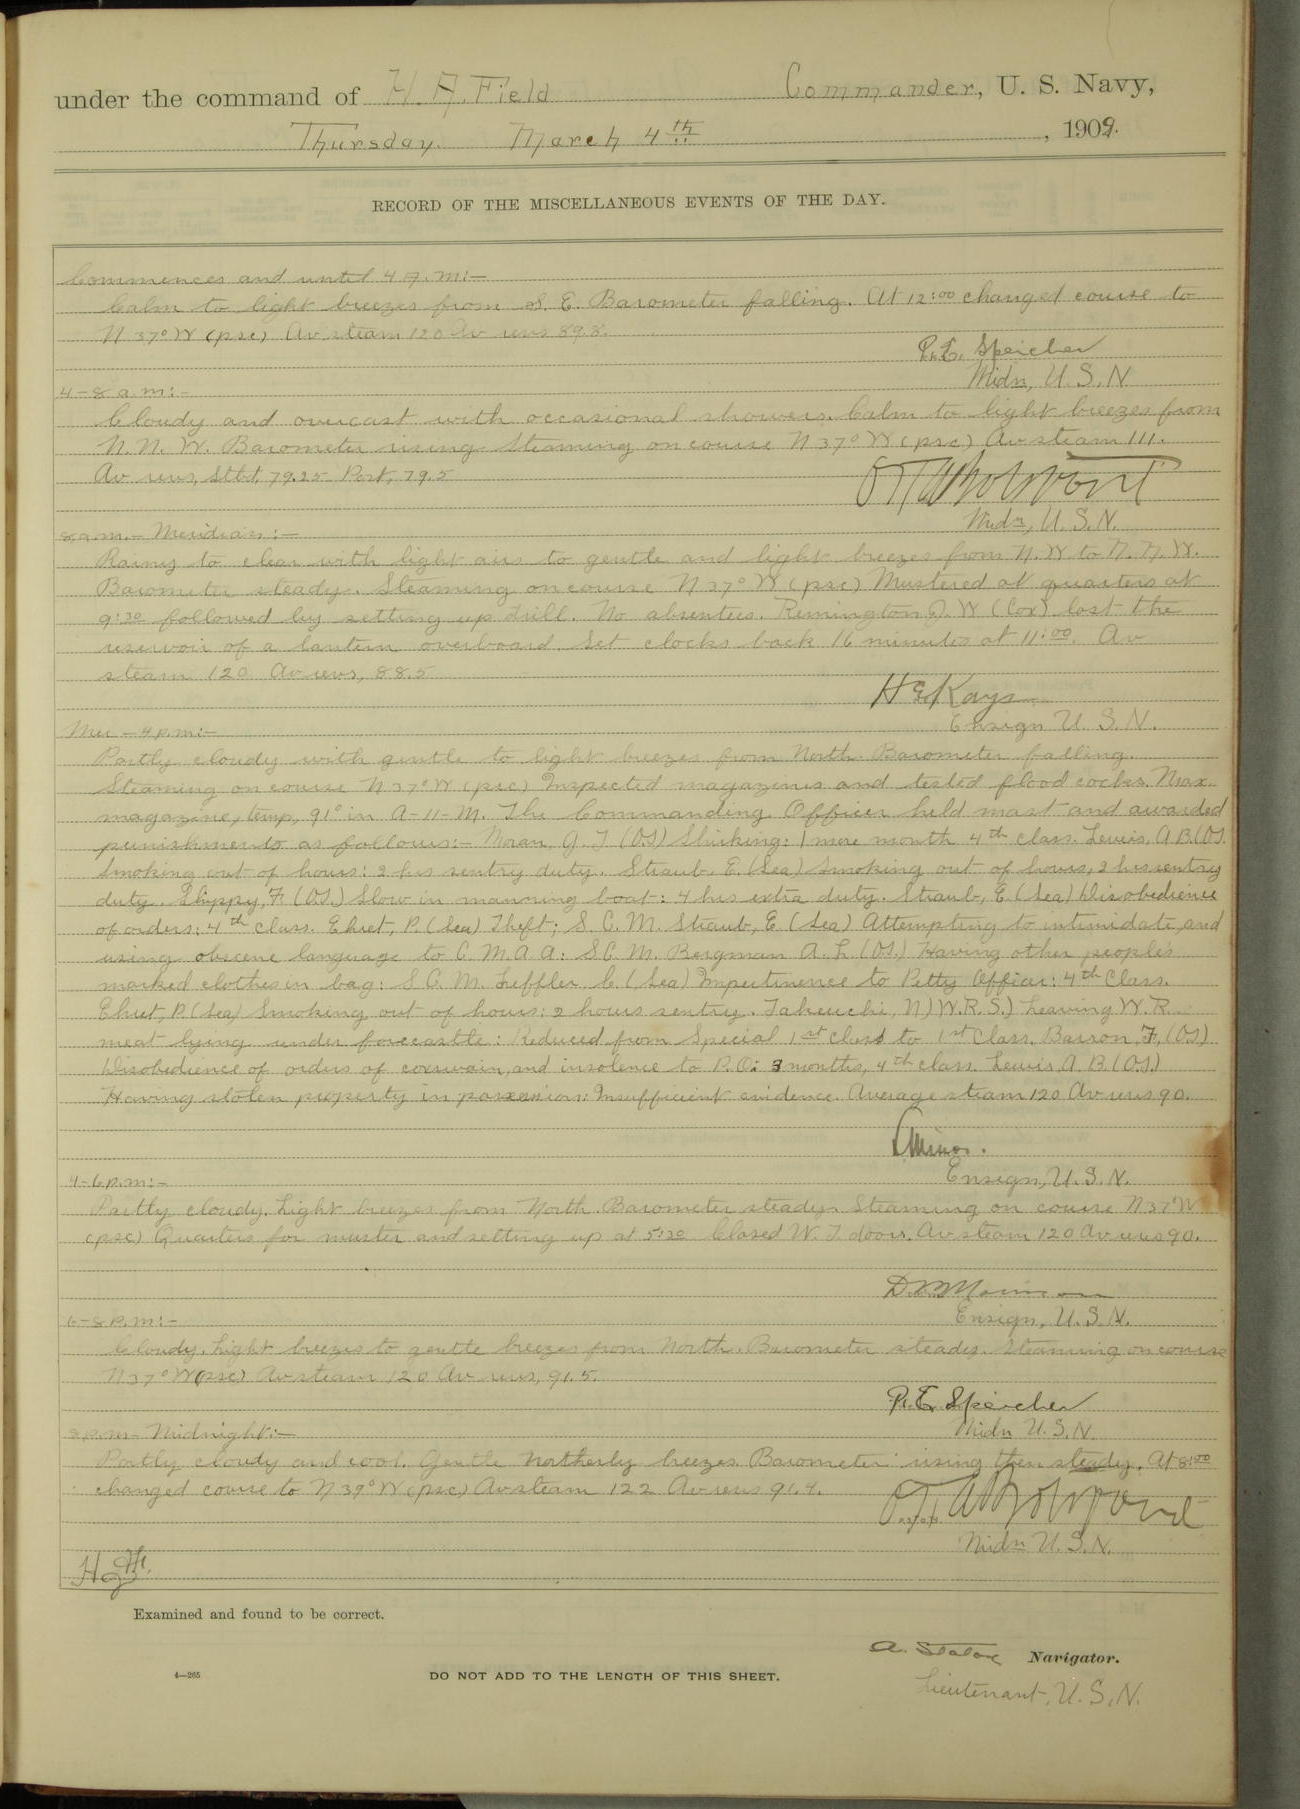 under the command of H. A. Field Commander, U. S. Navy,
Thursday. March 4th, 1909.
RECORD OF THE MISCELLANEOUS EVENTS OF THE DAY.
Commences and until 4 A.M:-
Calm to light breezes from S. E. Barometer falling. At 12:00 changed course to
N 37° W (psc) Av steam 120 Av revs 89.8.
P. E. Speicher
Midn, U. S. N
4-8 a.m:-
Cloudy and overcast with occasional showers. Calm to light breezes from
N. N. W. Barometer rising. Steaming on course N 37° W (psc) Av steam 111.
Av revs, Stbd, 79.25 Port, 79.5
Midn, U. S. N.
8 a.m.- Meridian:-
Rainy to clear with light airs to gentle and light breezes from N. W to N. N. W.
Barometer steady. Steaming on course N 37° W (psc) Mustered at quarters at
9:30 followed by setting up drill. No absentees. Remington J. W (Cox) lost the
reservoir of a lantern overboard. Set clocks back 16 minutes at 11:00. Av
steam 120 Av revs, 88.5
H E Kays
Ensign U. S. N.
Mer - 4 p.m:-
Partly cloudy with gentle to light breezes from North. Barometer falling.
Steaming on course N 37° W (psc) Inspected magazines and tested flood cocks. Max.
magazine, temp, 91° in A-11-M. The Commanding Officer held mast and awarded
punishments as follows:- Moran, J. J (O.S) Shirking: 1 more month 4th class. Lewis, A B. (O.S.
Smoking out of hours: 2 hrs sentry duty. Straub, E. (Sea) Smoking out of hours, 2 hrs sentry
duty. Shippy, F (O.S.) Slow in manning boat: 4 hrs extra duty. Straub, E (Sea) Disobedience
of orders: 4th class. Ehret, P. (Sea) Theft; S. C. M. Straub, E (Sea) Attempting to intimidate, and
using obscene language to C. M. A. A: S.C. M. Bergman A. L. (O.S.) Having other people's
marked clothes in bag: S. C. M. Leffler C. (Sea) Impertinence to Petty Officer: 4th Class.
Ehret, P. (Sea) Smoking out of hours: 2 hours sentry. Takeuchi, N) W.R.S.) Leaving W. R.
meat lying under forecastle: Reduced from Special 1st class to 1st Class. Barron, F, (O.S)
Disobedience of orders of coxswain, and insolence to P.O: 3 months, 4th class. Lewis, A. B. (O.S.)
Having stolen property in possession: Insufficient evidence. Average steam 120 Av revs 90.
Minor.
Ensign, U. S. N.
4-6 p.m:-
Partly cloudy. Light breezes from North. Barometer steady. Steaming on course N 37 W
(psc) Quarters for muster and setting up at 5:30 Closed W. T. doors. Av steam 120 Av revs 90.
Ensign, U. S. N.
6-8 P.m:-
Cloudy. Light breezes to gentle breezes from North. Barometer steady. Steaming on course
N 37° W (psc) Av steam 120 Av revs, 91.5.
P. E. Speicher
Midn U. S. N.
8 p.m- Midnight:-
Partly cloudy and cool. Gentle Northerly breezes. Barometer rising then steady. At 8:00
changed course to N 39° W (psc) Av steam 122 Av revs 91.4.
Midn U. S. N.
Examined and found to be correct.
Navigator.
4—265 DO NOT ADD TO THE LENGTH OF THIS SHEET.
Lieutenant, U. S. N.